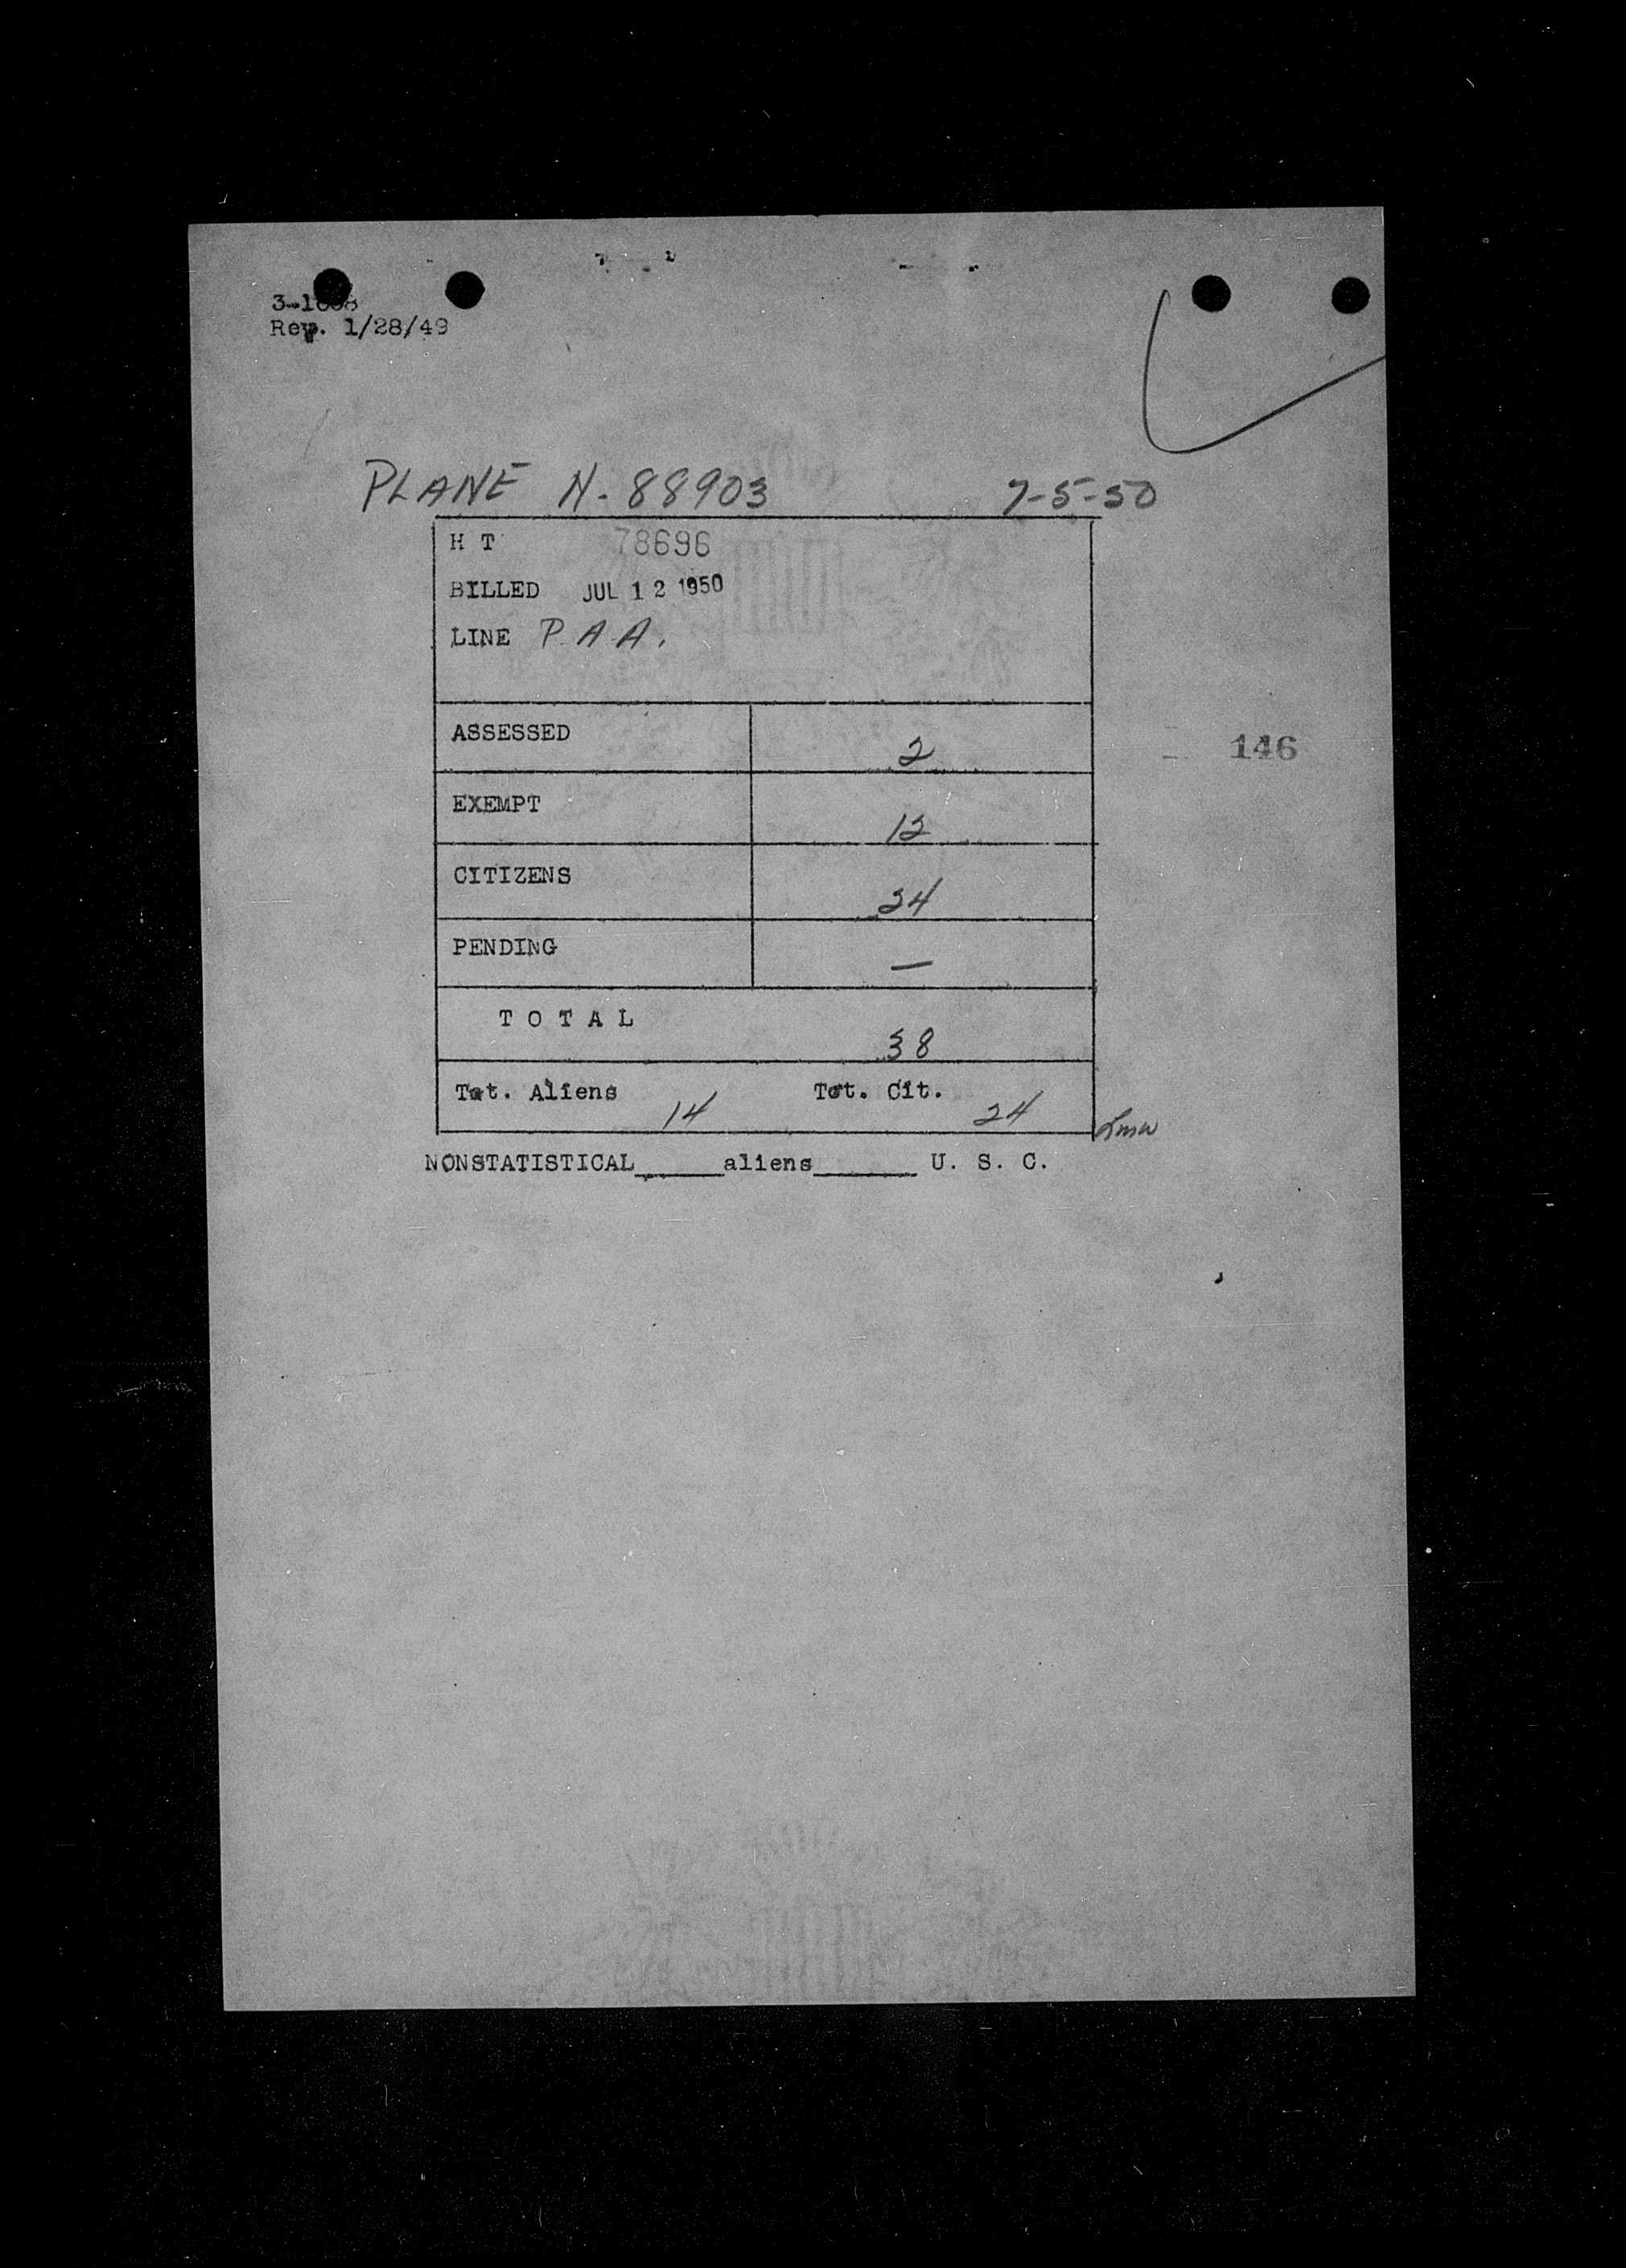 Rev. 1/28/49
PLANE N-88903 7-5-50
H T 78696
BILLED JUL 12 1950
LINE P.A.A.
ASSESSED 2
146
EXEMPT 12
CITIZENS 24
PENDING —
TOTAL 38
Tot. Aliens 14 Tot. Cit. 24
NONSTATISTICAL______aliens_______ U. S. C.